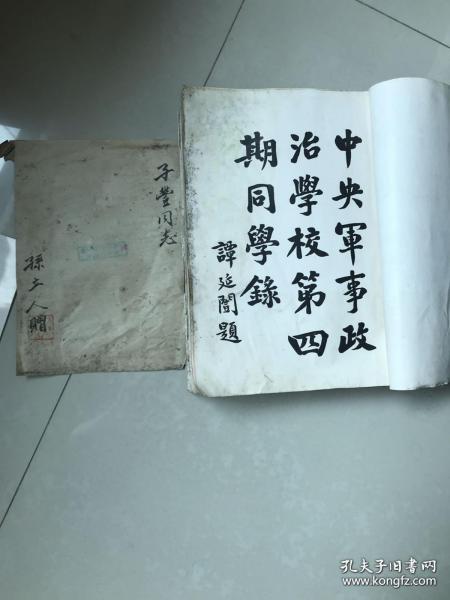 中央軍事政
治學校第四
期同學錄
譚延闓題
子豐同志
孫立人贈
孔夫子旧书网
www.kongfz.com